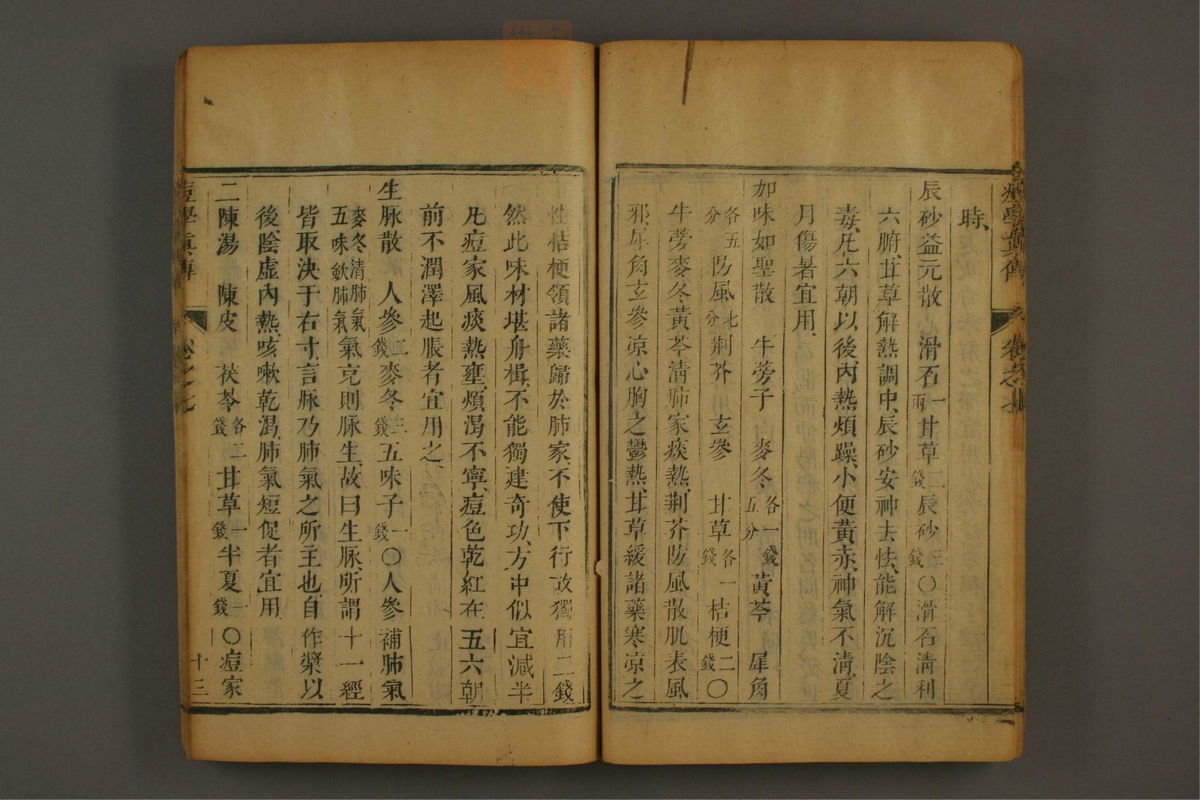 時
辰砂益元散 滑石一兩甘草二錢辰砂三錢○滑石淸利
六腑甘草解熱調中辰砂安神去怯能解沉陰之
毒凡六朝以後內熱煩躁小便黃赤神氣不淸夏
月傷暑宜用
如味如聖散 牛蒡子 麥冬各一錢五分黃芩 犀角
各五分防風七分荆芥 玄參 甘草各一錢桔梗二錢○
牛蒡麥冬黃芩淸肺家痰熱荆芥防風散肌表風
邪犀角玄參凉心胸之鬱熱甘草緩諸藥寒凉之
性桔梗領諸藥歸於肺家不使下行故獨用二錢
然此味材堪舟楫不能獨建奇功方中似宜減半
凡痘家風痰熱壅煩渴不寧痘色乾紅在五六朝
前不潤澤起脹者宜用之
生脉散 人參二錢麥冬三錢五味子一錢○人參補肺氣
麥冬淸肺氣五味歛肺氣氣充則脉生故曰生脉所謂十一經
皆取決于右寸言脉乃肺氣之所主也自作漿以
後陰虛內熱咳嗽乾渴肺氣短促者宜用
二陳湯 陳皮 茯苓各二錢甘草一錢半夏一錢○痘家
痘學眞傳 卷之七 十三